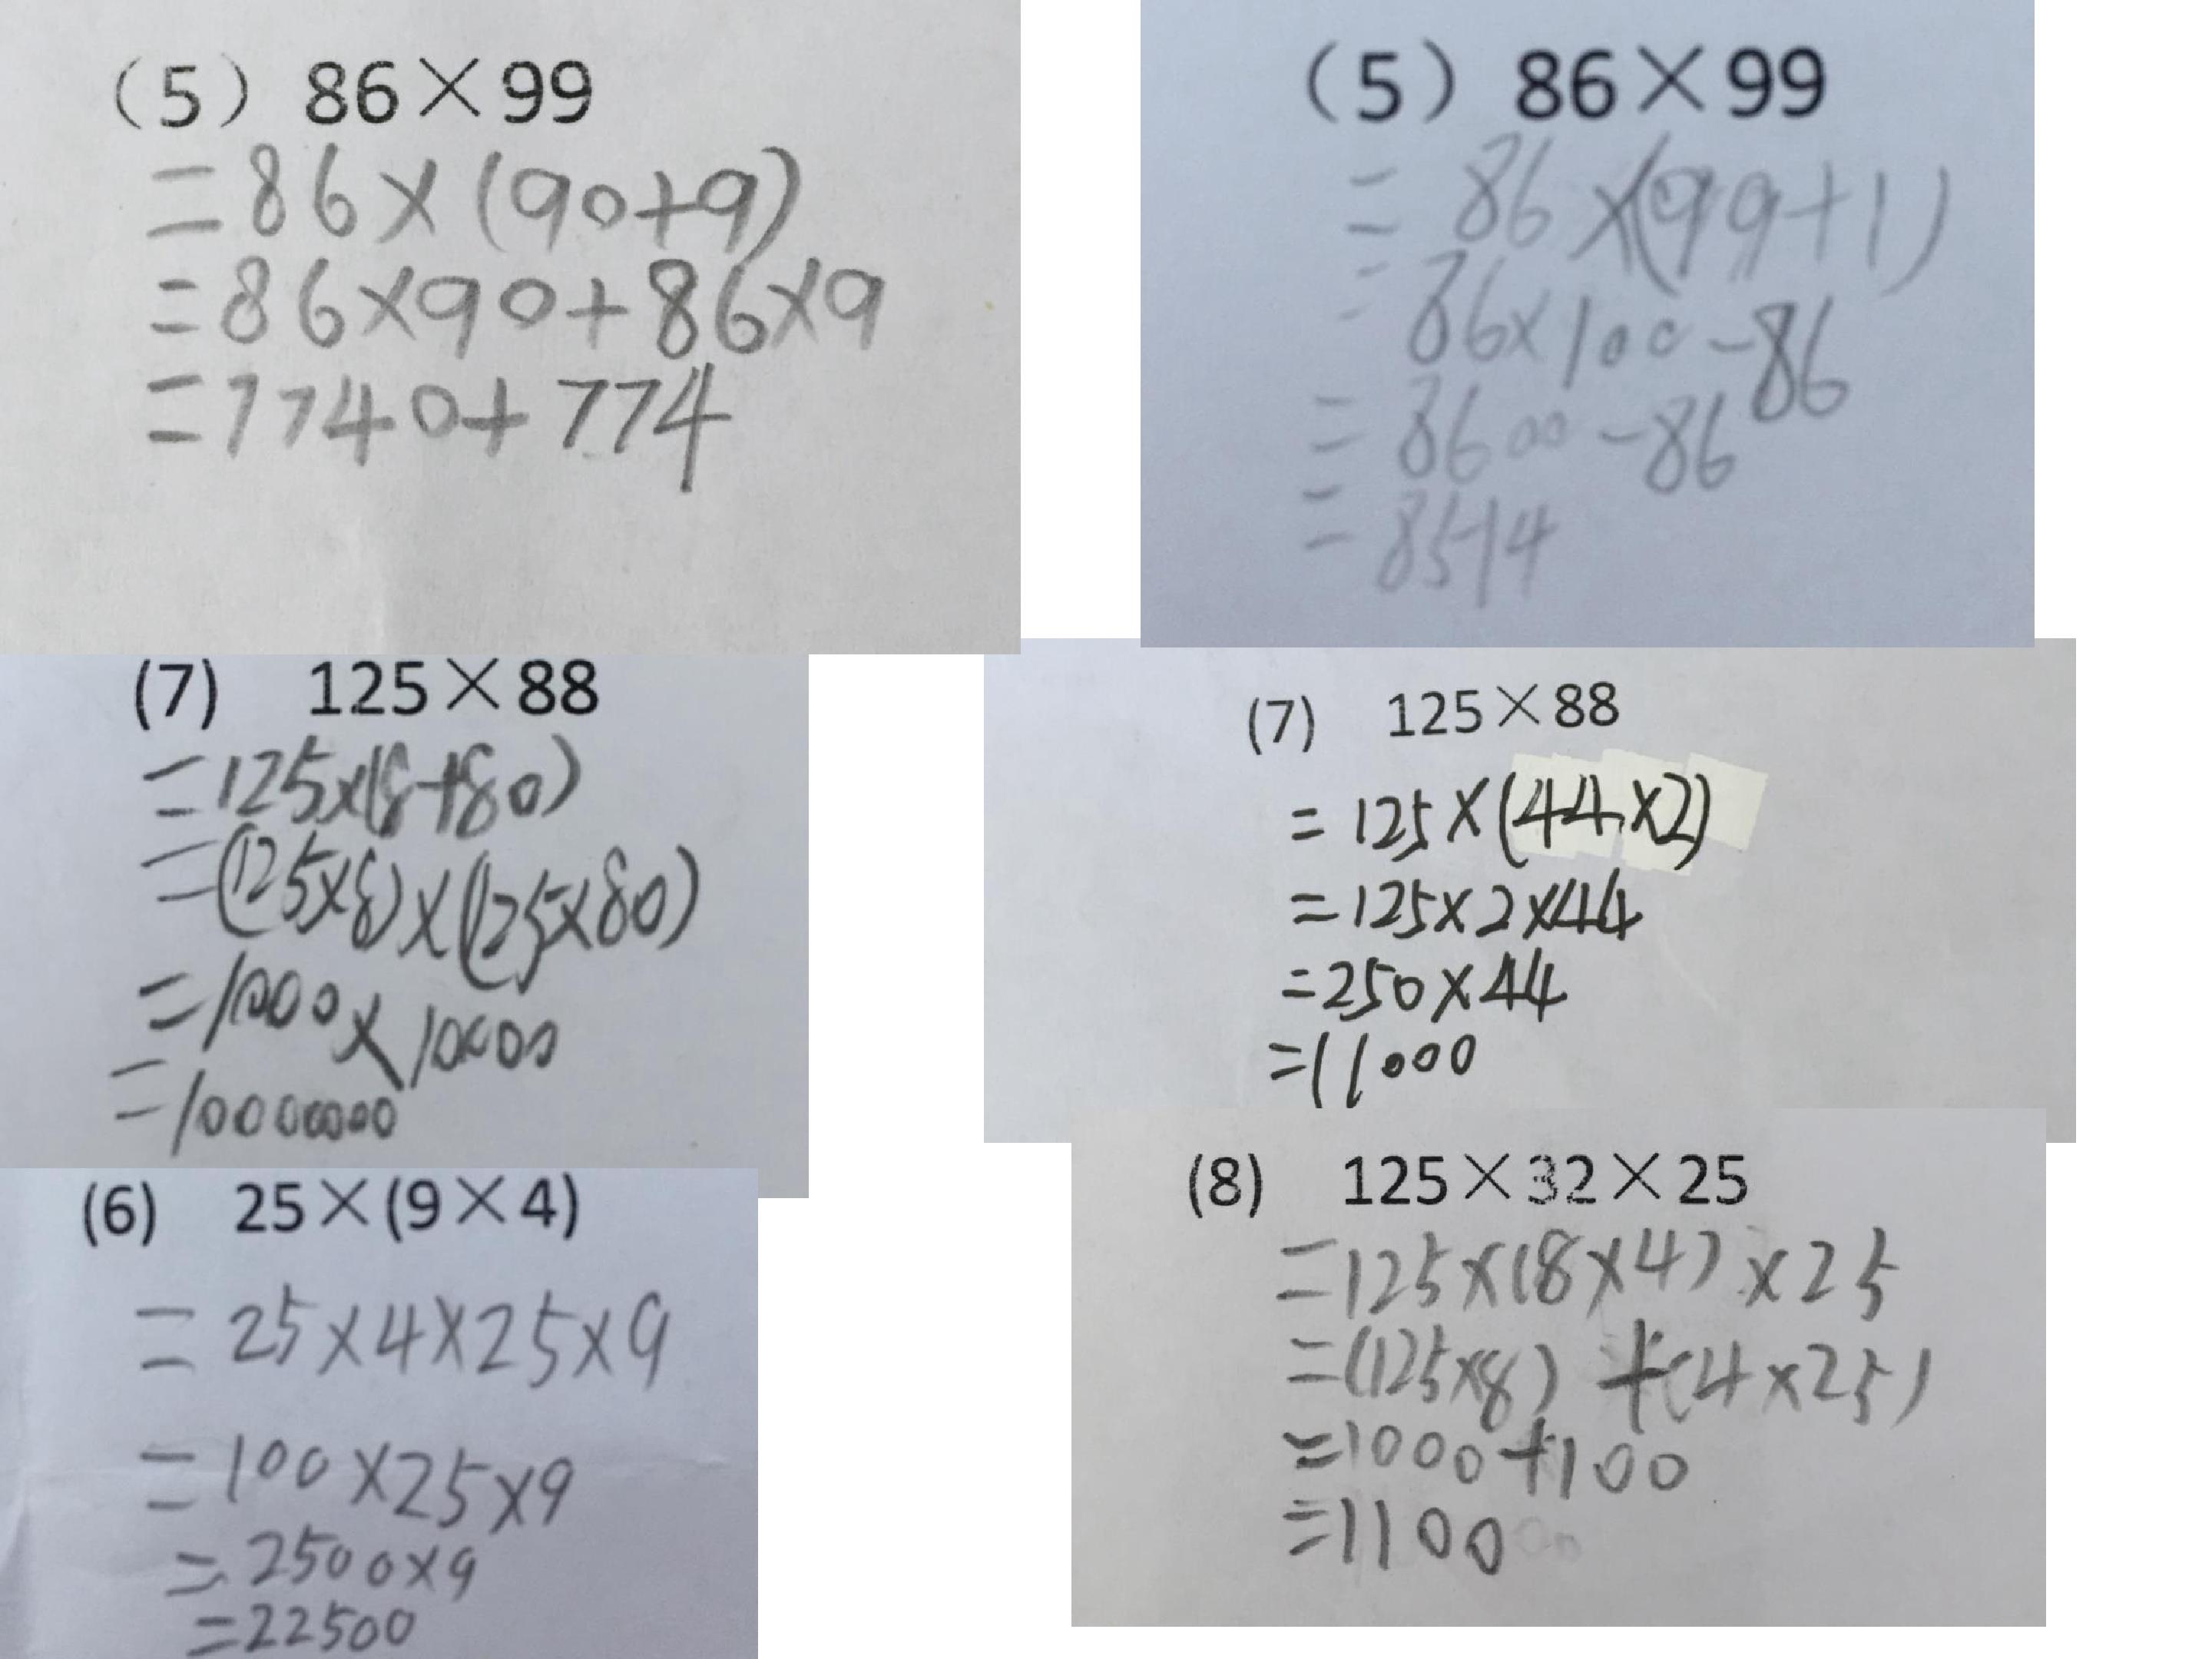 （5）86×99
=86×(90+9)
=86×90+86×9
=7740+774
（5）86×99
=86×(99+1)
=86×100-86
=8600-86
=8514
(7) 125×88
=125×(8+80)
=(125×8)×(125×80)
=1000×10000
=10000000
(7) 125×88
=125×(44×2)
=125×2×44
=250×44
=11000
(6) 25×(9×4)
=25×4×25×9
=100×25×9
=2500×9
=22500
(8) 125×32×25
=125×(8×4)×25
=(125×8)+(4×25)
=1000+100
=1100